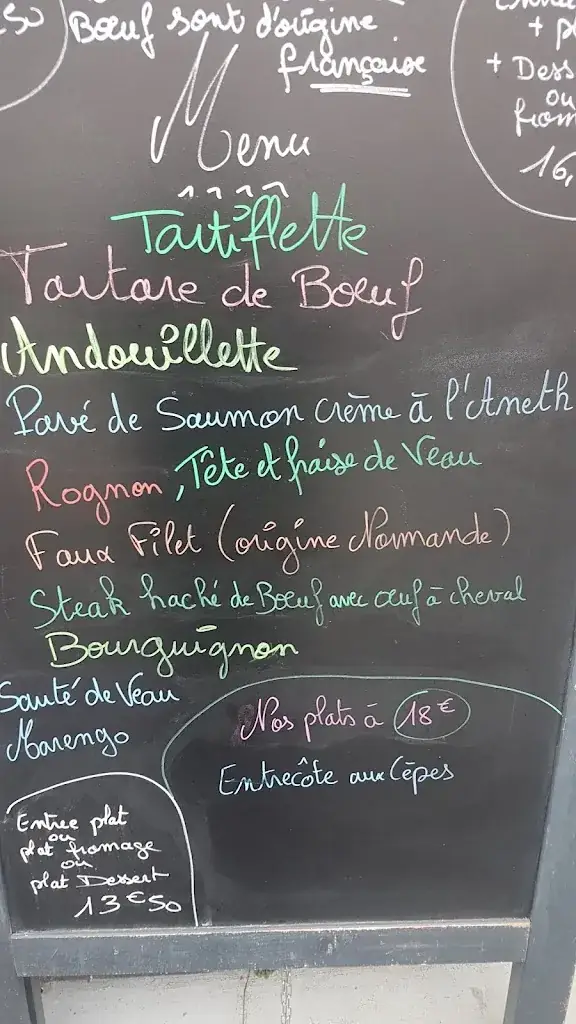 50
Bœuf sont d'origine
française
+
+ Dess
ou
from
16,
Menu
Tartiflette
Tartare de Bœuf
Andouillette
Pavé de Saumon crème à l'Aneth
Rognon, Tête et fraise de Veau
Faux Filet (origine Normande)
Steak haché de Bœuf avec œuf à cheval
Bourguignon
Sauté de Veau
Marengo
Nos plats à 18€
Entrecôte aux Cèpes
Entree plat
ou
plat fromage
ou
plat Dessert
13€50